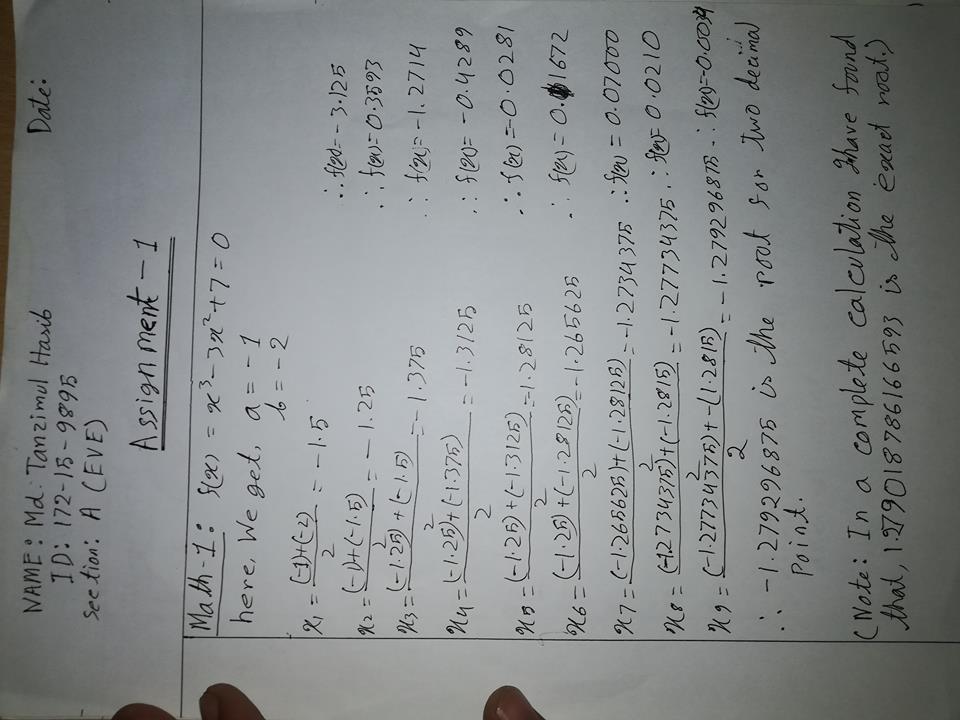 NAME: Md. Tanzimul Hasib Date:
ID: 172-15-9895
Section: A (EVE)
Assignment-1
Math-1: f(x) = x³-3x²+7=0
here, We get, a = -1
b = -2
x₁ = (-1)+(-2)/2 = -1.5 ∴ f(x)= -3.125
x₂ = (-1)+(-1.5)/2 = -1.25 ∴ f(x)=0.3593
x₃ = (-1.25)+(-1.5)/2 = -1.375 ∴ f(x)= -1.2714
x₄ = (-1.25)+(-1.375)/2 = -1.3125 ∴ f(x)= -0.4289
x₅ = (-1.25)+(-1.3125)/2 = -1.28125 ∴ f(x)=-0.0281
x₆ = (-1.25)+(-1.28125)/2 = -1.265625 ∴ f(x)= 0.1672
x₇ = (-1.265625)+(-1.28125)/2 = -1.2734375 ∴ f(x)= 0.07000
x₈ = (-1.2734375)+(-1.2815)/2 = -1.27734375 ∴ f(x)= 0.0210
x₉ = (-1.27734375)+-(1.2815)/2 = -1.279296875 ∴ f(x)=-0.0034
∴ -1.279296875 is the root for two decimal
point.
(Note: In a complete calculation I have found
that, 1.279018786166593 is the exact root.)